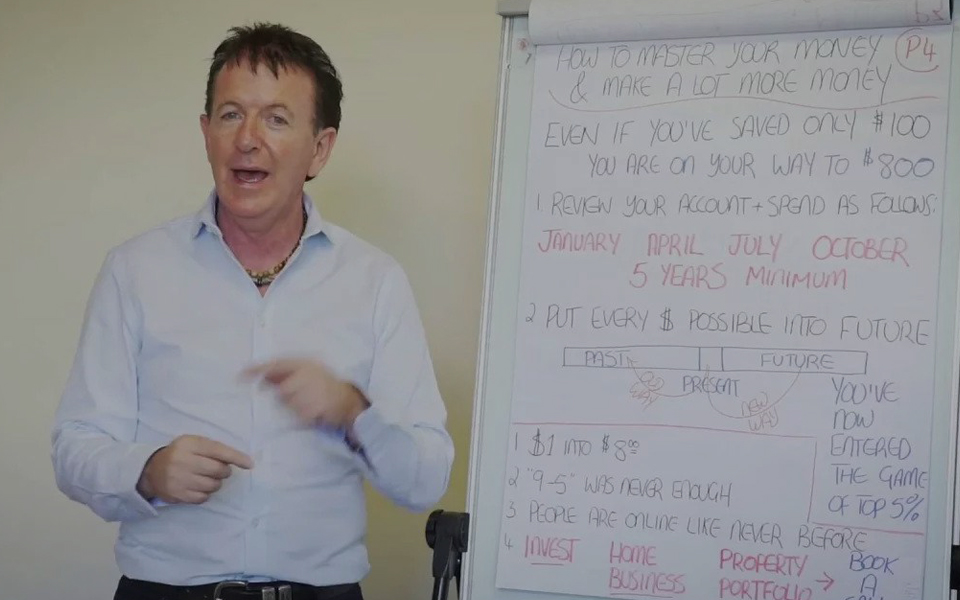 HOW TO MASTER YOUR MONEY P4
& MAKE A LOT MORE MONEY
EVEN IF YOU'VE SAVED ONLY $100
YOU ARE ON YOUR WAY TO $800
1 REVIEW YOUR ACCOUNT + SPEND AS FOLLOWS:
JANUARY APRIL JULY OCTOBER
5 YEARS MINIMUM
2 PUT EVERY $ POSSIBLE INTO FUTURE
PAST FUTURE
PRESENT
OLD WAY
NEW WAY
YOU'VE
NOW
ENTERED
THE GAME
OF TOP 5%
1 $1 INTO $8.00
2 "9-5" WAS NEVER ENOUGH
3 PEOPLE ARE ONLINE LIKE NEVER BEFORE
4 INVEST HOME PROPERTY → BOOK
BUSINESS PORTFOLIO A